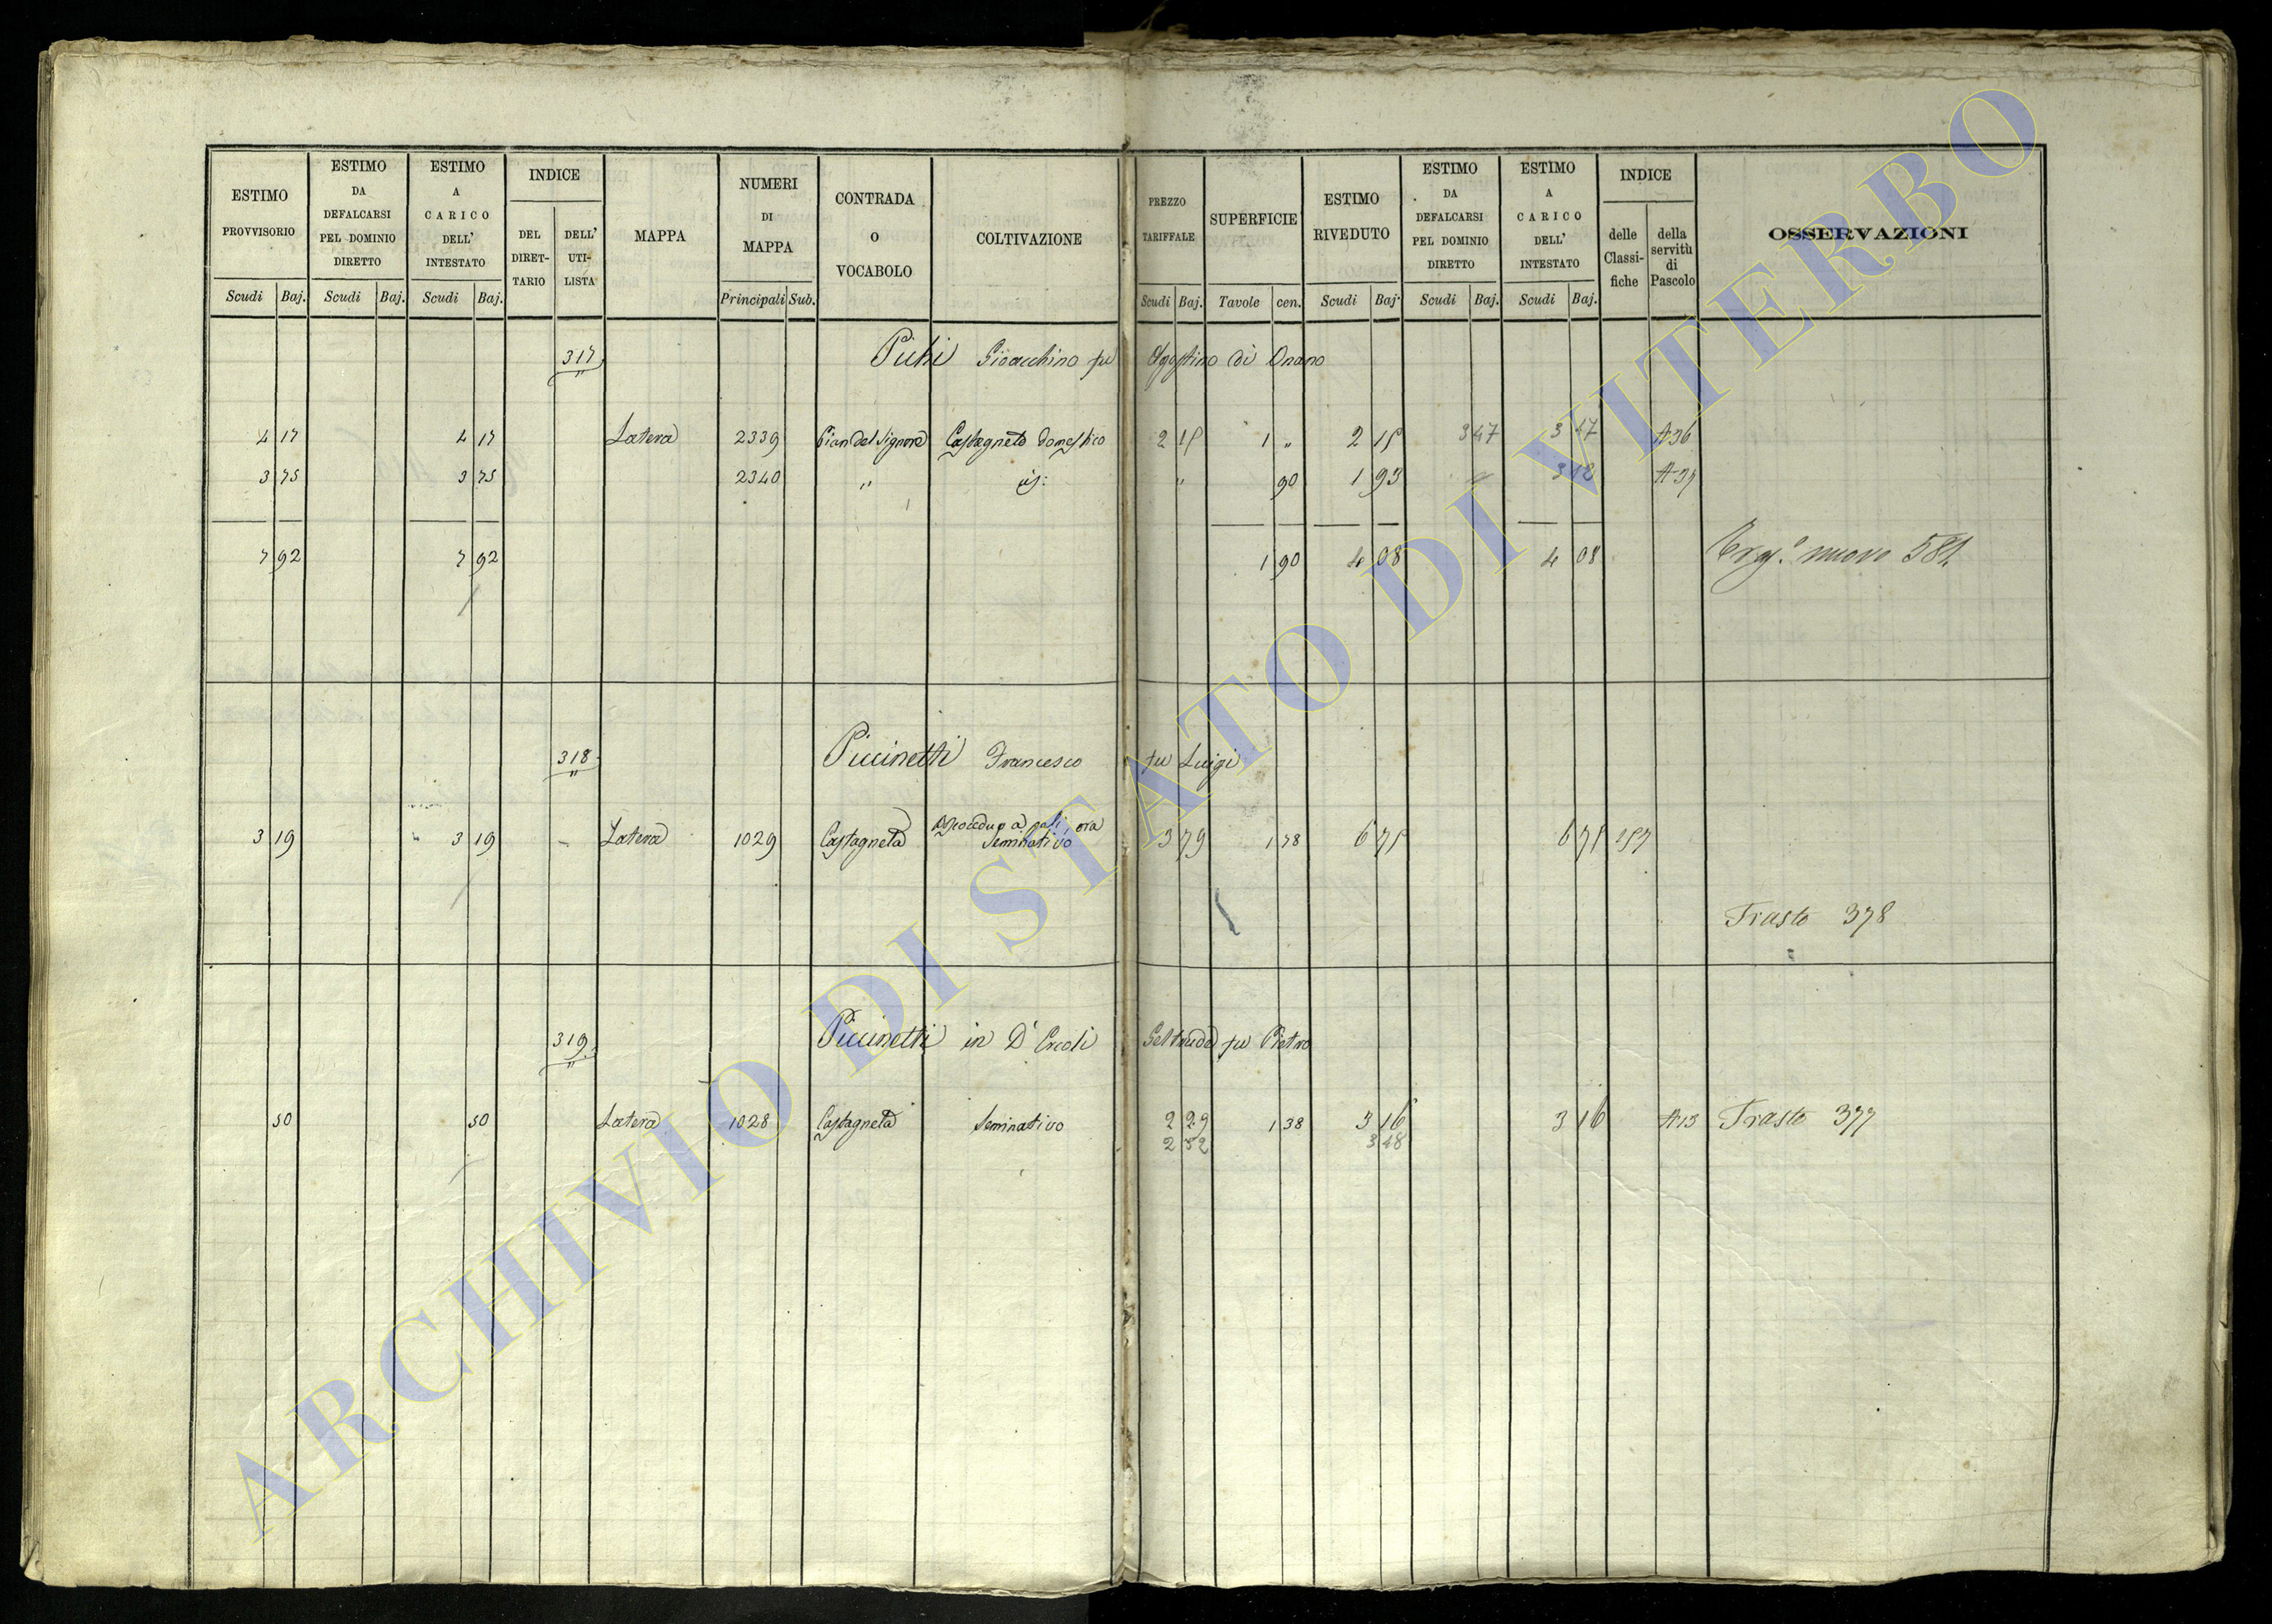 ESTIMO PROVVISORIO Scudi Baj.
ESTIMO DA DEFALCARSI PEL DOMINIO DIRETTO Scudi Baj.
ESTIMO A CARICO DELL' INTESTATO Scudi Baj.
INDICE DEL DIRET-TARIO DELL' UTI-LISTA
MAPPA
NUMERI DI MAPPA Principali Sub.
CONTRADA O VOCABOLO
COLTIVAZIONE
PREZZO TARIFFALE Scudi Baj.
SUPERFICIE Tavole cen.
ESTIMO RIVEDUTO Scudi Baj.
ESTIMO DA DEFALCARSI PEL DOMINIO DIRETTO Scudi Baj.
ESTIMO A CARICO DELL' INTESTATO Scudi Baj.
INDICE delle Classi-fiche della servitù di Pascolo
OSSERVAZIONI
317 Gioacchino fu Agostino di Onano
4 17 4 17 Latera 2339 Pian del Signore Castagneto domestico 2 15 1 " 2 15 3 47 3 47 A36
3 75 3 75 2340 " id: " 90 1 93 " 3 12
7 92 7 92 1 90 4 08 4 08 nuovo
318 Piccinetti Francesco fu Luigi
3 19 3 19 Latera 1029 Castagneta a pali, ora Seminativo 3 79 1 78 6 75 6 75 157
Trasto 378
319 Piccinetti in D'Ercoli Geltrude fu Pietro
50 50 Latera 1028 Castagneta Seminativo 2 29 1 38 3 16 3 16 A13 Trasto 377
2 52 3 48
ARCHIVIO DI STATO DI VITERBO